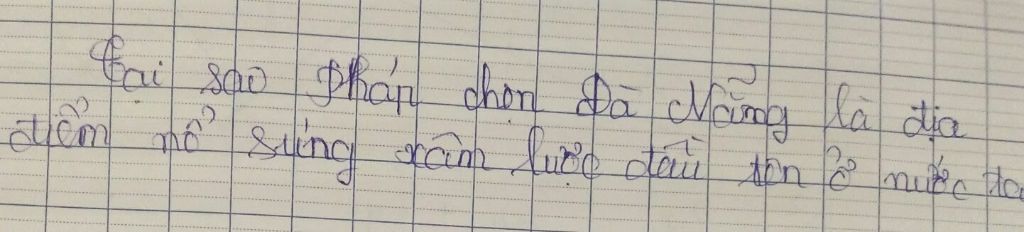 Tại sao Pháp chọn Đà Nẵng là địa
điểm nổ súng xâm lược đầu tiên ở nước ta